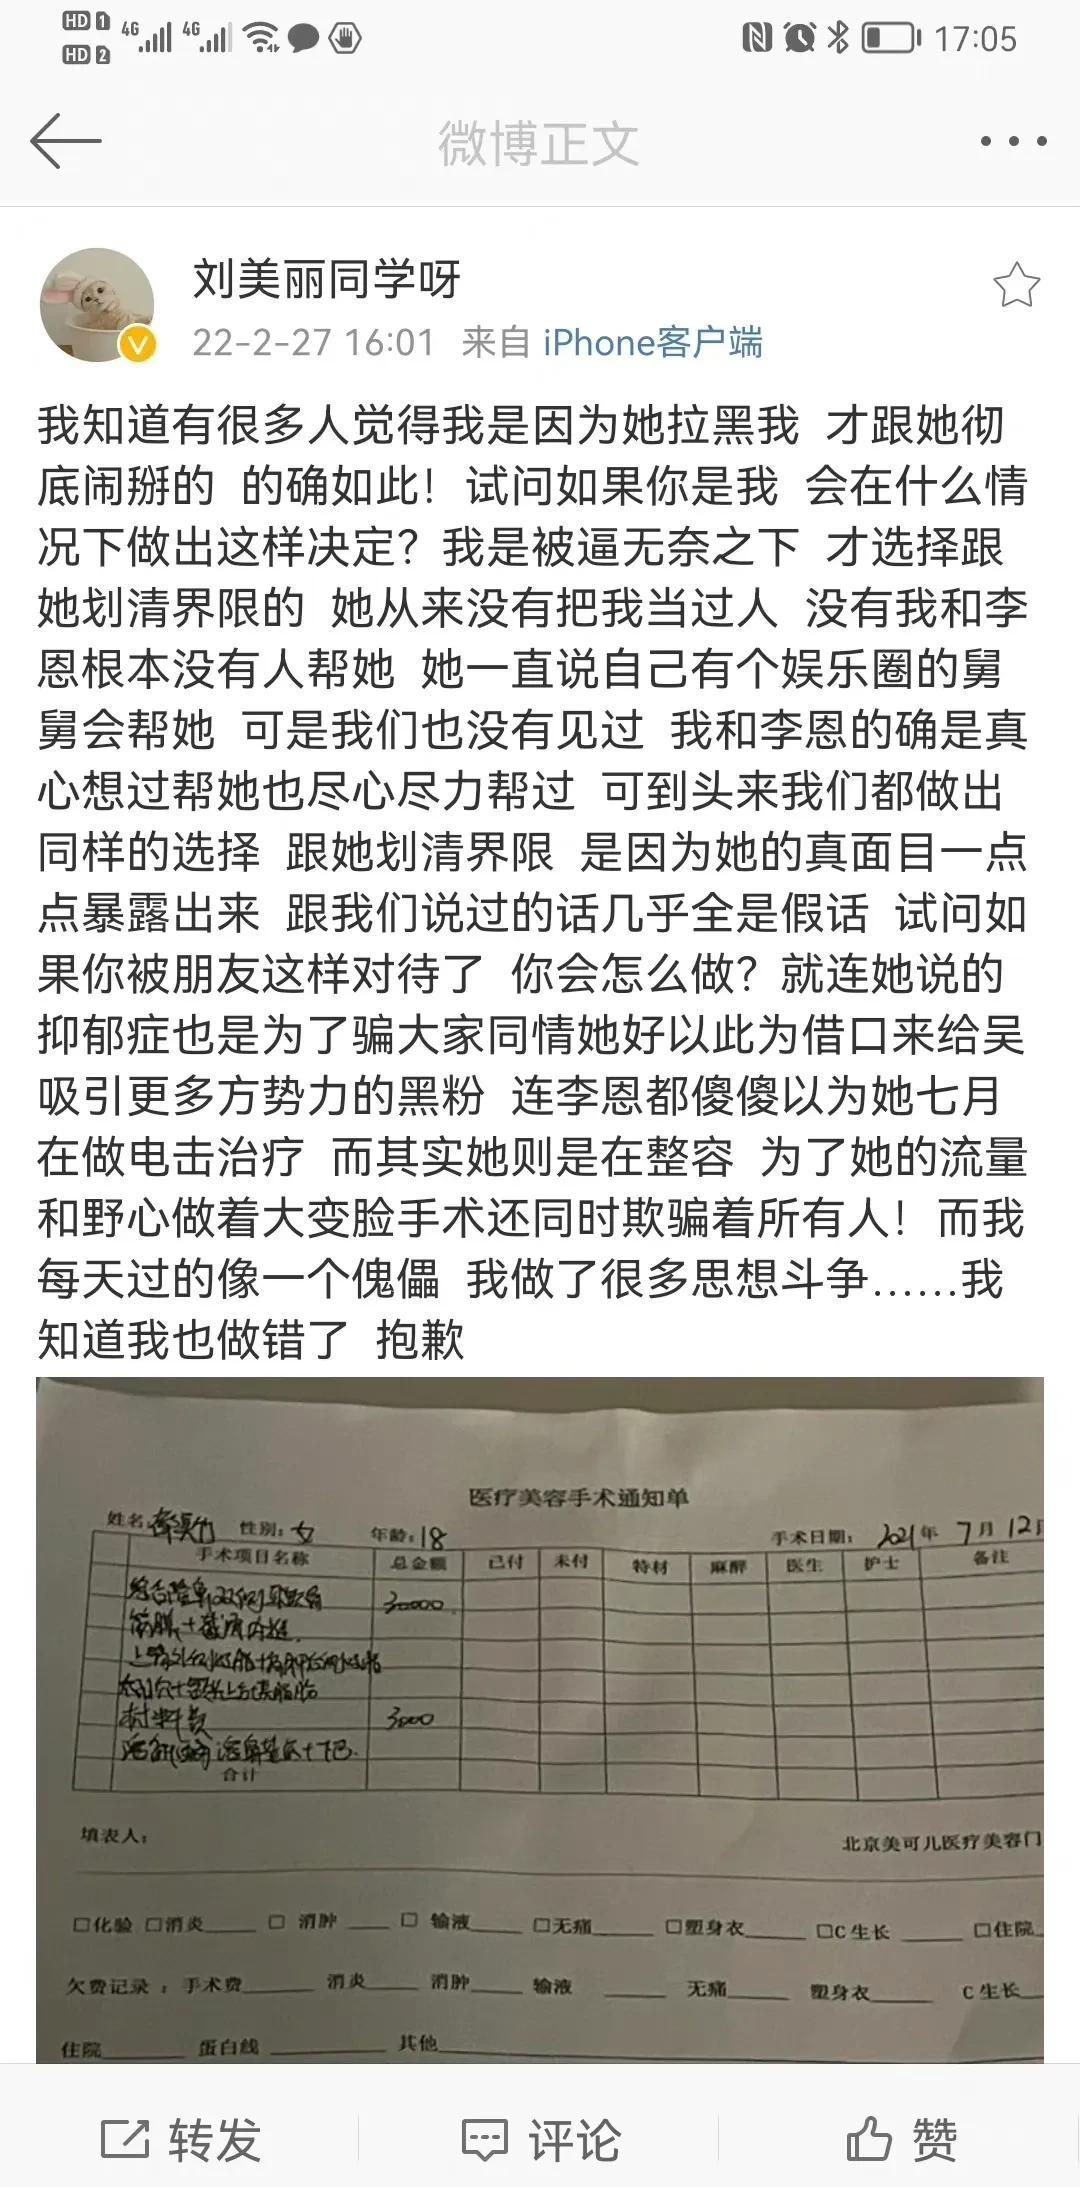 HD 1 4G 4G 17:05
HD 2
微博正文
刘美丽同学呀
22-2-27 16:01 来自 iPhone客户端
我知道有很多人觉得我是因为她拉黑我 才跟她彻
底闹掰的 的确如此！试问如果你是我 会在什么情
况下做出这样决定？我是被逼无奈之下 才选择跟
她划清界限的 她从来没有把我当过人 没有我和李
恩根本没有人帮她 她一直说自己有个娱乐圈的舅
舅会帮她 可是我们也没有见过 我和李恩的确是真
心想过帮她也尽心尽力帮过 可到头来我们都做出
同样的选择 跟她划清界限 是因为她的真面目一点
点暴露出来 跟我们说过的话几乎全是假话 试问如
果你被朋友这样对待了 你会怎么做？就连她说的
抑郁症也是为了骗大家同情她好以此为借口来给吴
吸引更多方势力的黑粉 连李恩都傻傻以为她七月
在做电击治疗 而其实她则是在整容 为了她的流量
和野心做着大变脸手术还同时欺骗着所有人！而我
每天过的像一个傀儡 我做了很多思想斗争……我
知道我也做错了 抱歉
医疗美容手术通知单
姓名: 性别: 女 年龄: 18 手术日期: 2021年 7月 12日
手术项目名称 总金额 已付 未付 特材 麻醉 医生 护士 备注
30000
材料费 3000
合计
填表人: 北京美可儿医疗美容门
□化验 □消炎____ □ 消肿 ____ □ 输液____ □无痛____ □塑身衣____ □C 生长 ____ □住院
欠费记录 : 手术费____ 消炎____ 消肿____ 输液 ____ 无痛____ 塑身衣____ C 生长____
住院____ 蛋白线 ____ 其他____
转发 评论 赞